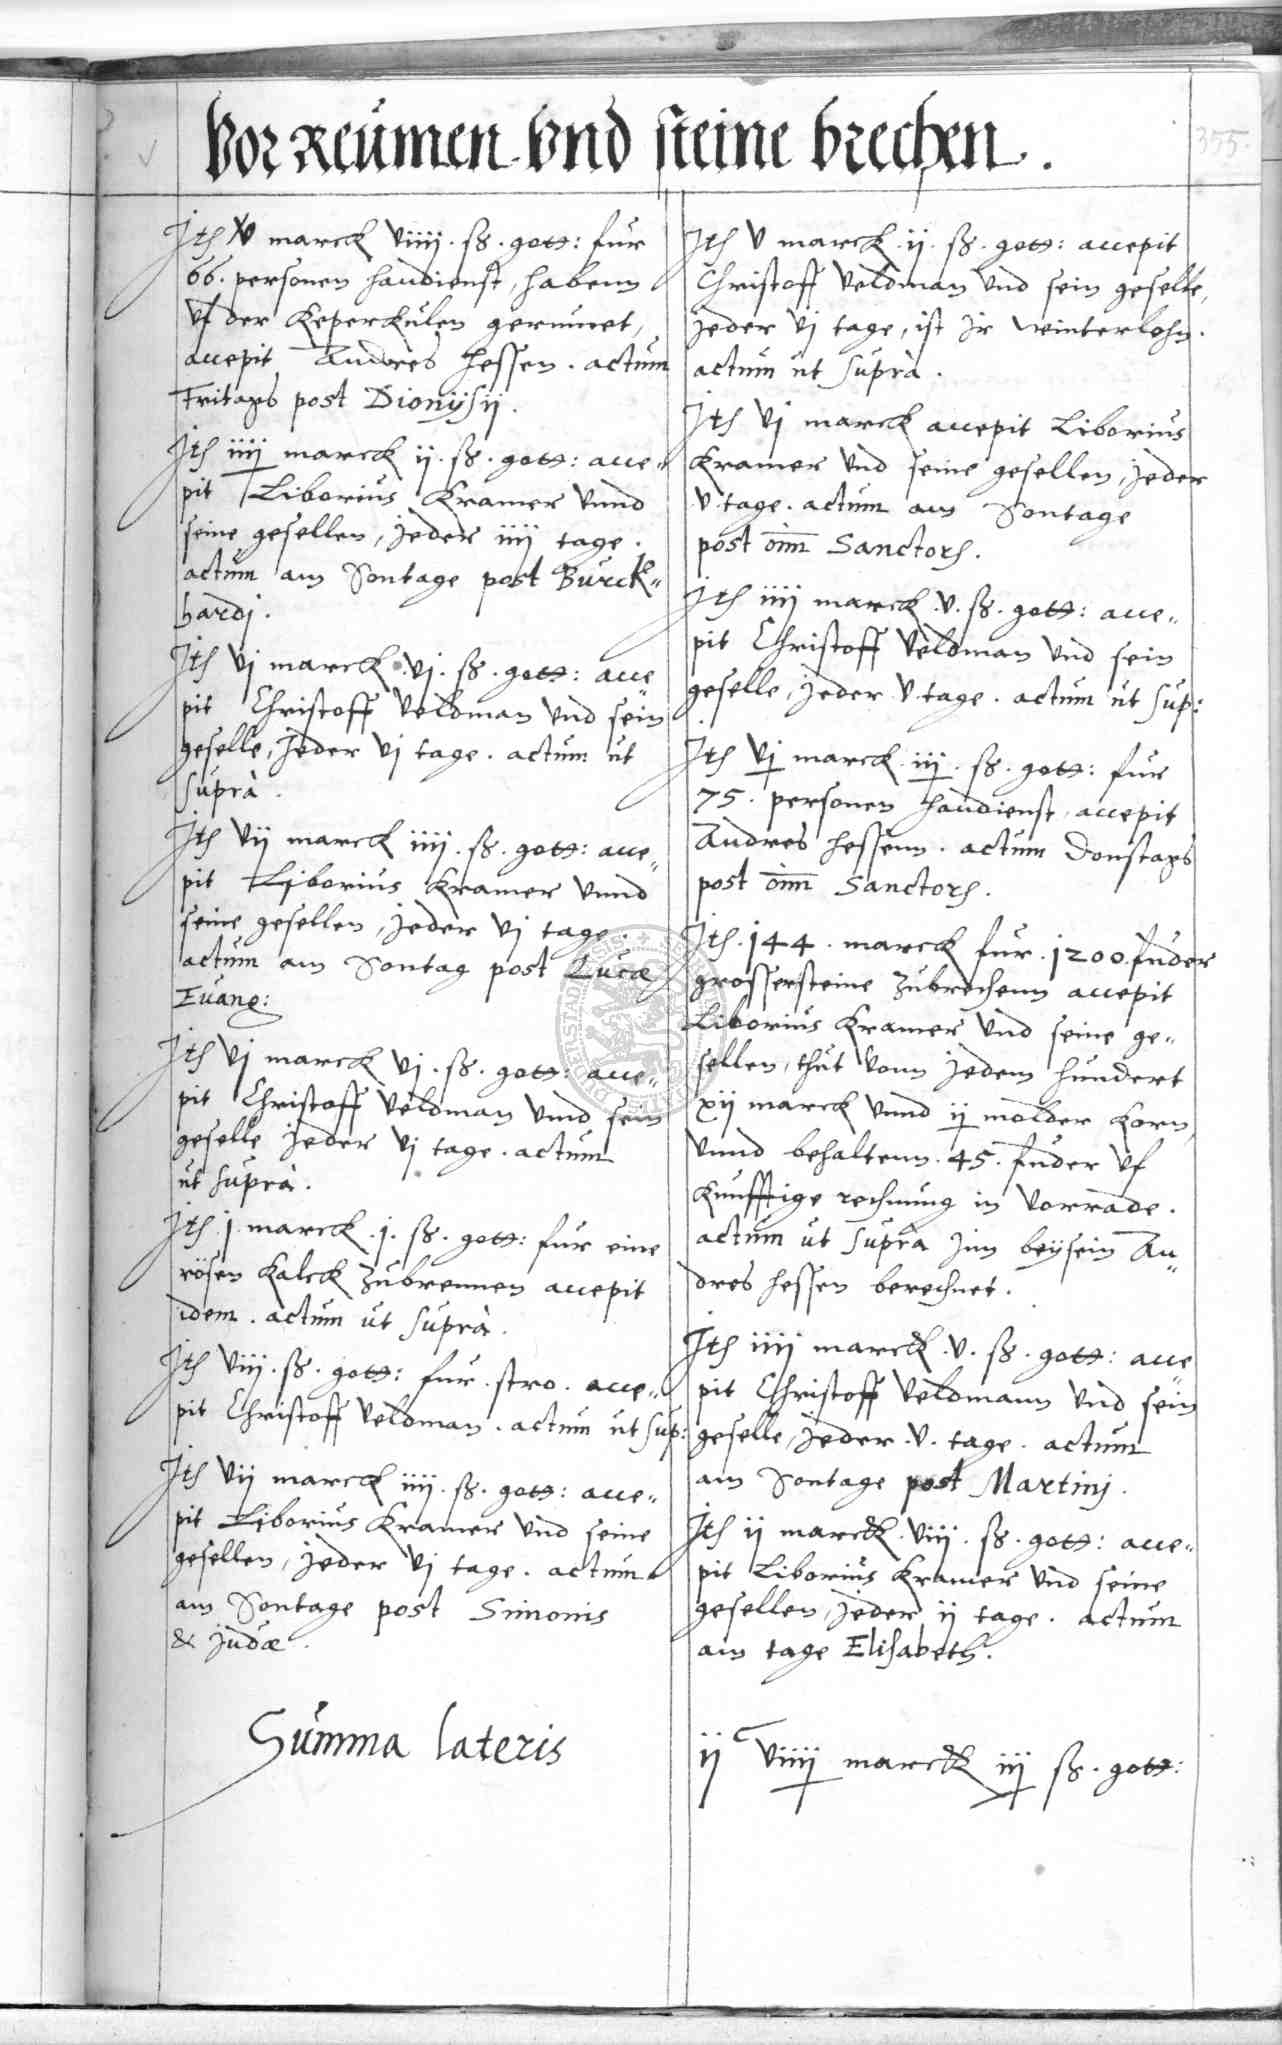 Vor Reumen Vnd steine brechen.
355.
Jtem V marck viiij. ß. gott: fur
66. personen handienst, habenn
vf der Keperkulen gerumet,
accepit Andres Hessen. actum
Fritags post Dionysij.
Jtem iiij marck ij. ß. gott: acce„
pit Liborius Kramer vnnd
seine gesellen, Jeder iiij tage.
actum am Sontage post Burck„
hardj.
Jtem vj marck. vj. ß. gott: acce„
pit Christoff Veldman vnd sein
geselle, Jeder vj tage. actum ut
supra.
Jtem vij marck iiij. ß. gott: acce„
pit Liborius Kramer vnnd
seine gesellen, Jeder vj tage.
actum am Sontag post Lucæ
Euang:
Jtem vj marck vj. ß. gott: acce„
pit Christoff Veldman vnnd sein
geselle Jeder vj tage. actum
ut supra.
Jtem j marck. j. ß. gott: fur eine
rösen Kalck Zubrennen accepit
idem. actum ut supra.
Jtem viij. ß. gott: fur. stro. acce„
pit Christoff Veldman. actum ut sup:
Jtem vij marck iiij. ß. gott: acce„
pit Liborius Kramer vnd seine
gesellen, Jeder vj tage. actum
am Sontage post Simonis
& Judæ.
Summa lateris
Jtem v marck. ij. ß. gott: accepit
Christoff Veldman vnd sein geselle,
Jeder vj tage, ist Jr winterlohn.
actum ut supra.
Jtem vj marck accepit Liborius
Kramer vnd seine gesellen, Jeder
v. tage. actum am Sontage
post oīm Sanctorum.
Jtem iiij marck. v. ß. gott: acce„
pit Christoff Veldman vnd sein
geselle, Jeder v. tage. actum ut sup:
Jtem vj marck. iij. ß. gott: fur
75. personen handienst, accepit
Andres Hessenn. actum Donstags
post oīm Sanctorum.
Jtem. 144. marck fur. 1200. fuder
grossersteine Zubrechenn accepit
Liborius Kramer vnd seine ge„
sellen, thut vonn Jedem hundert
xij marck vnnd ij molder Korn,
vnnd behaltenn. 45. fuder vf
Kunfftige rechnung in Vorrade.
actum ut supra Jm beysein An„
dres Hessen berechnet.
Jtem iiij marck. v. ß. gott: acce„
pit Christoff Veldmann vnd sein
geselle, Jeder. v. tage. actum
am Sontage post Martinj.
Jtem ij marck. viij. ß. gott: acce„
pit Liborius Kramer vnd seine
gesellen, Jeder ij tage. actum
am tage Elisabeth.
ij C viiij marck iij ß. gott: